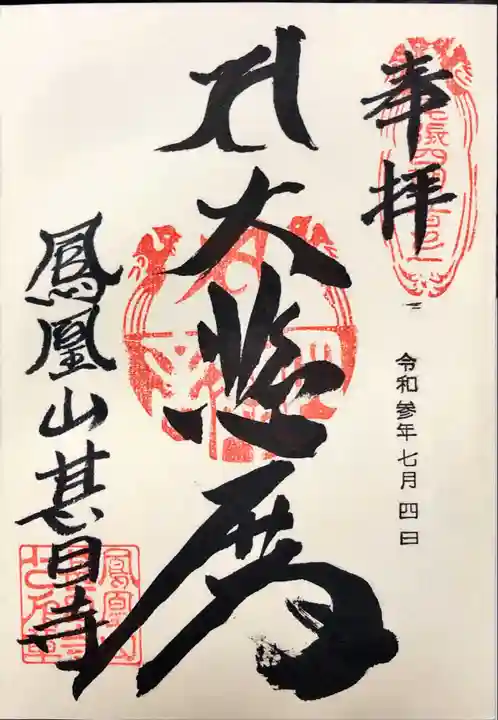 奉拝
令和参年七月四日
大悲殿
鳳凰山甚目寺